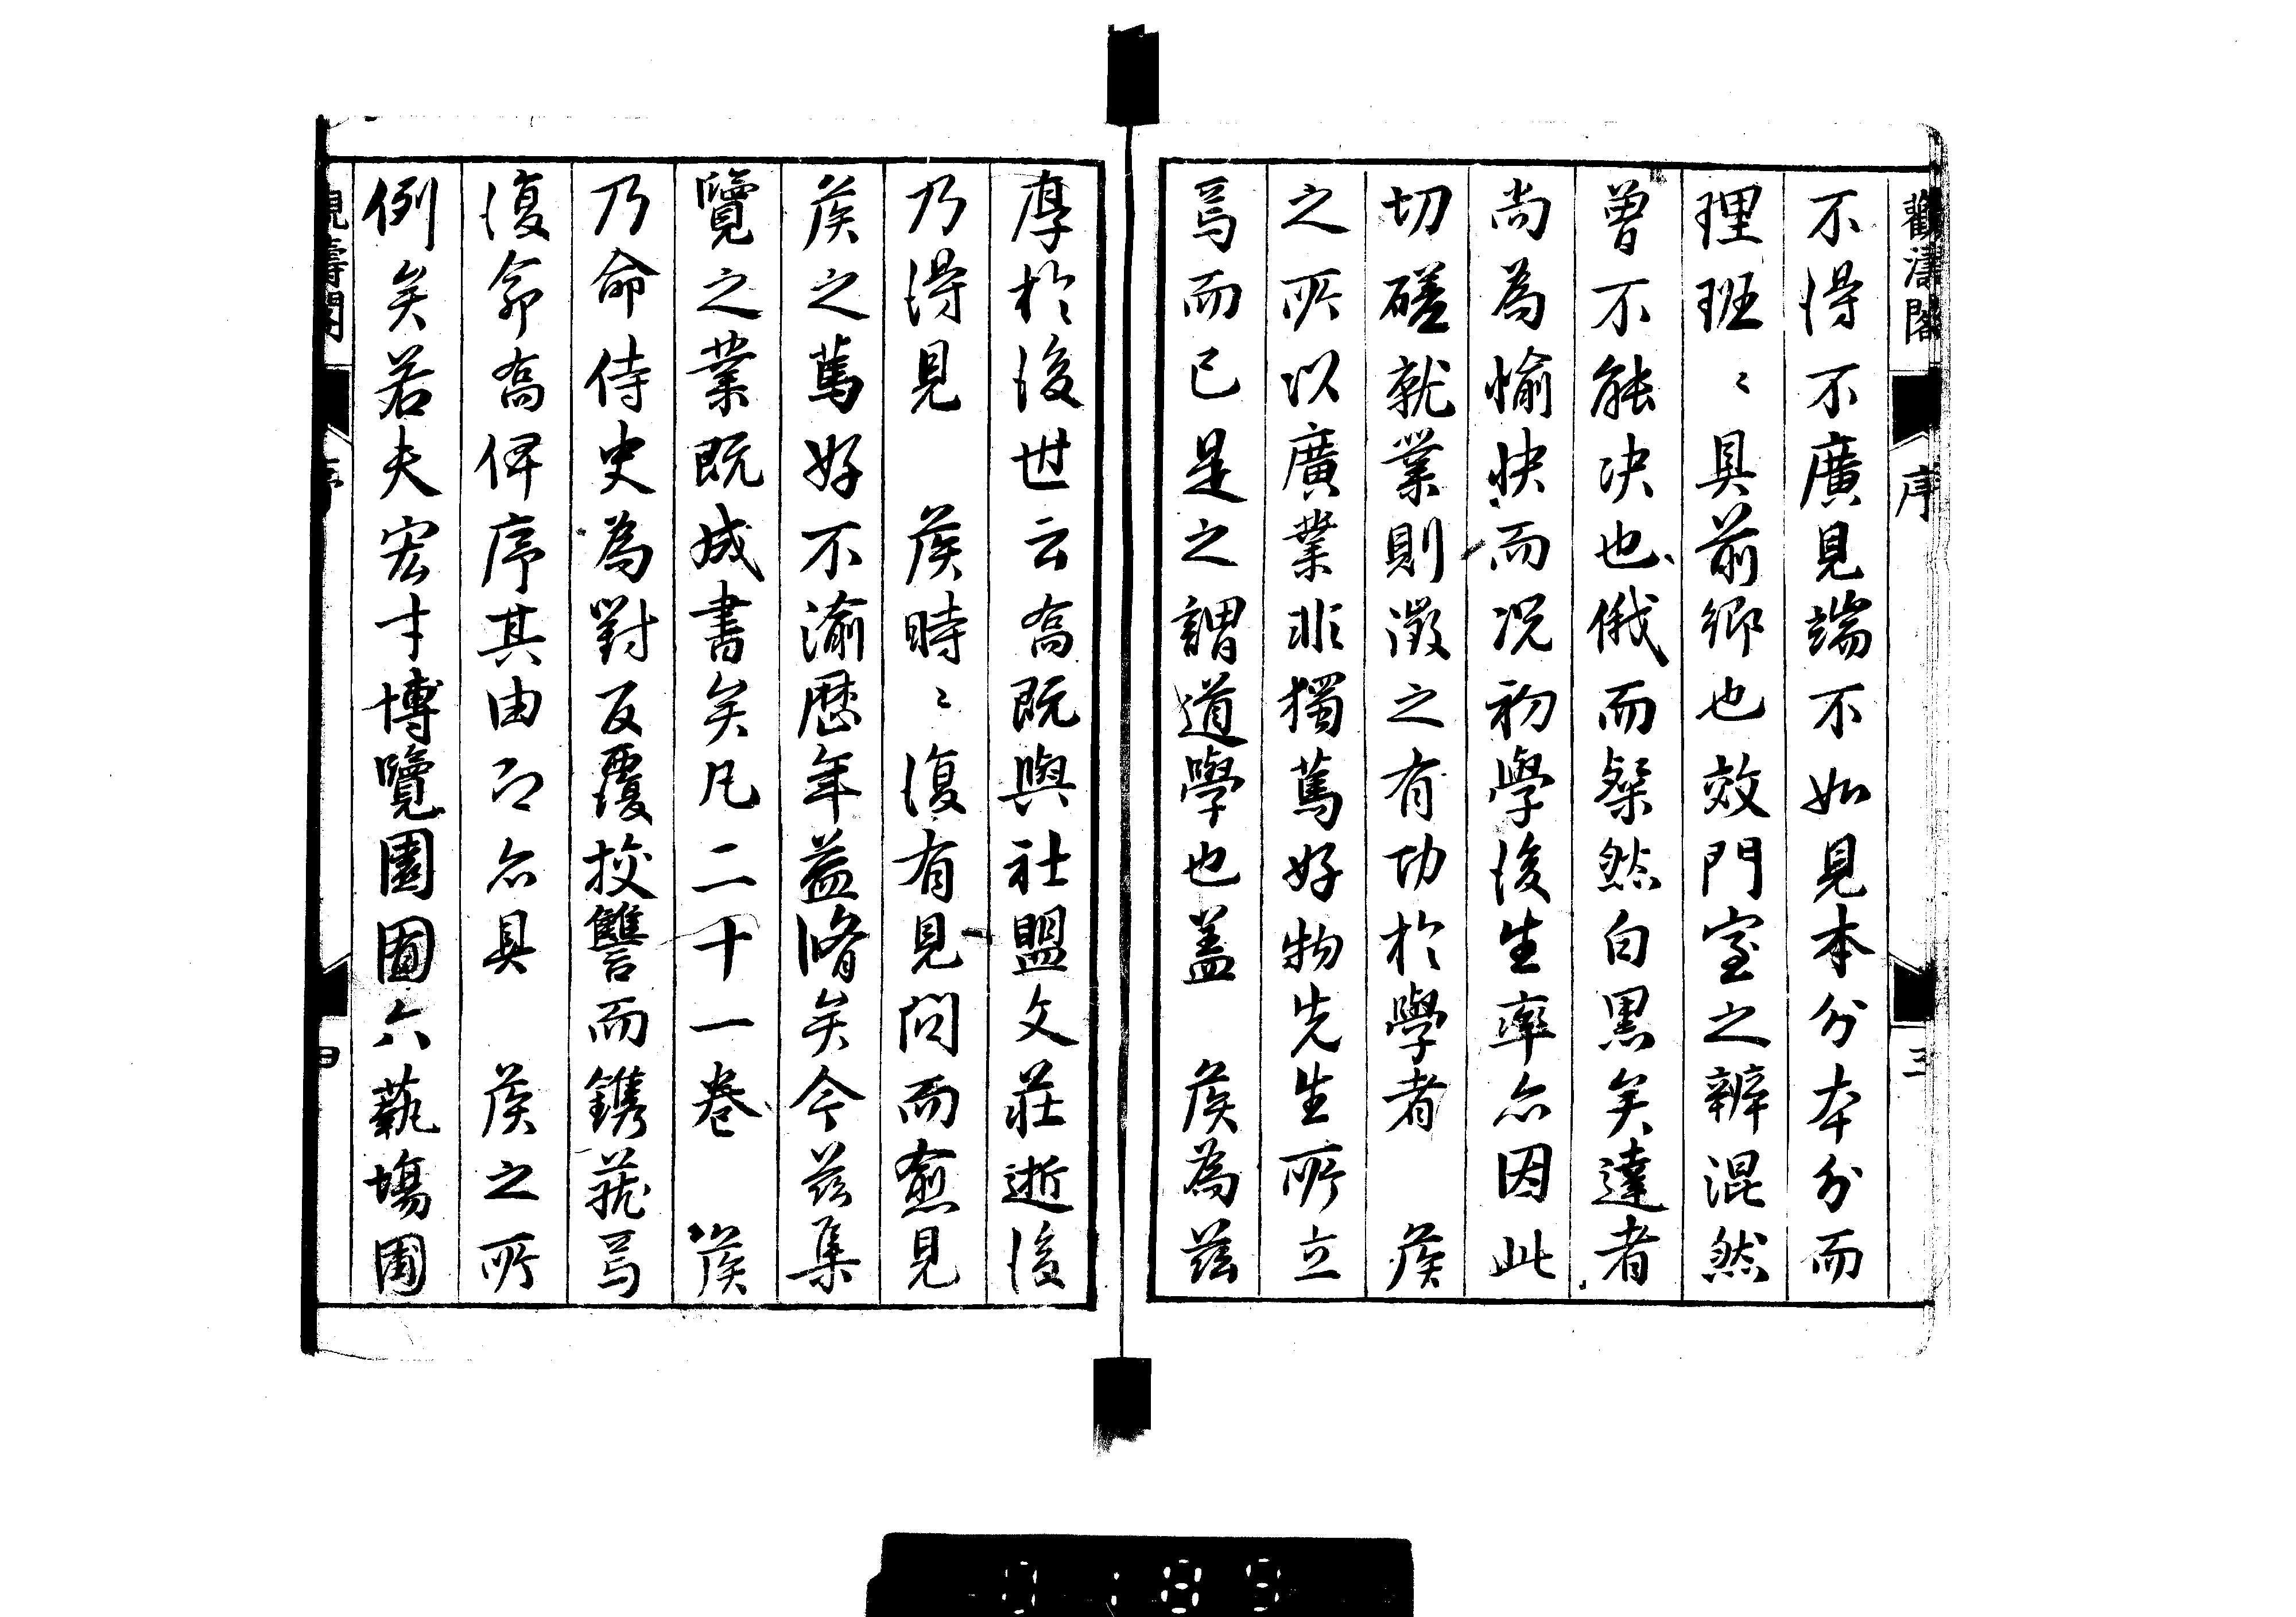 觀濤閣 序 三
不得不廣見端不如見本分本分而
理班〻具前鄉也效門室之辨混然
曾不能决也俄而粲然白黒矣達者
尚為愉快而况初學後生率亦因此
切磋就業則澂之有功於學者 矦
之所以廣業非獨蔫好物先生所立
焉而已是之謂道學也盖 矦為茲
厚於後世云高既與社盟文莊逝後
乃得見 矦時〻復有見問而愈見
矦之蔫好不渝歴年益脩矣今茲集
覽之業既成書矣凡二十一卷 矦
乃命侍史為對反覆挍讐而鐫蔵焉
復命高俾序其由即亦具 矦之所
例矣若夫宏才博覽園圃六藝場圃
觀濤閣 序 四